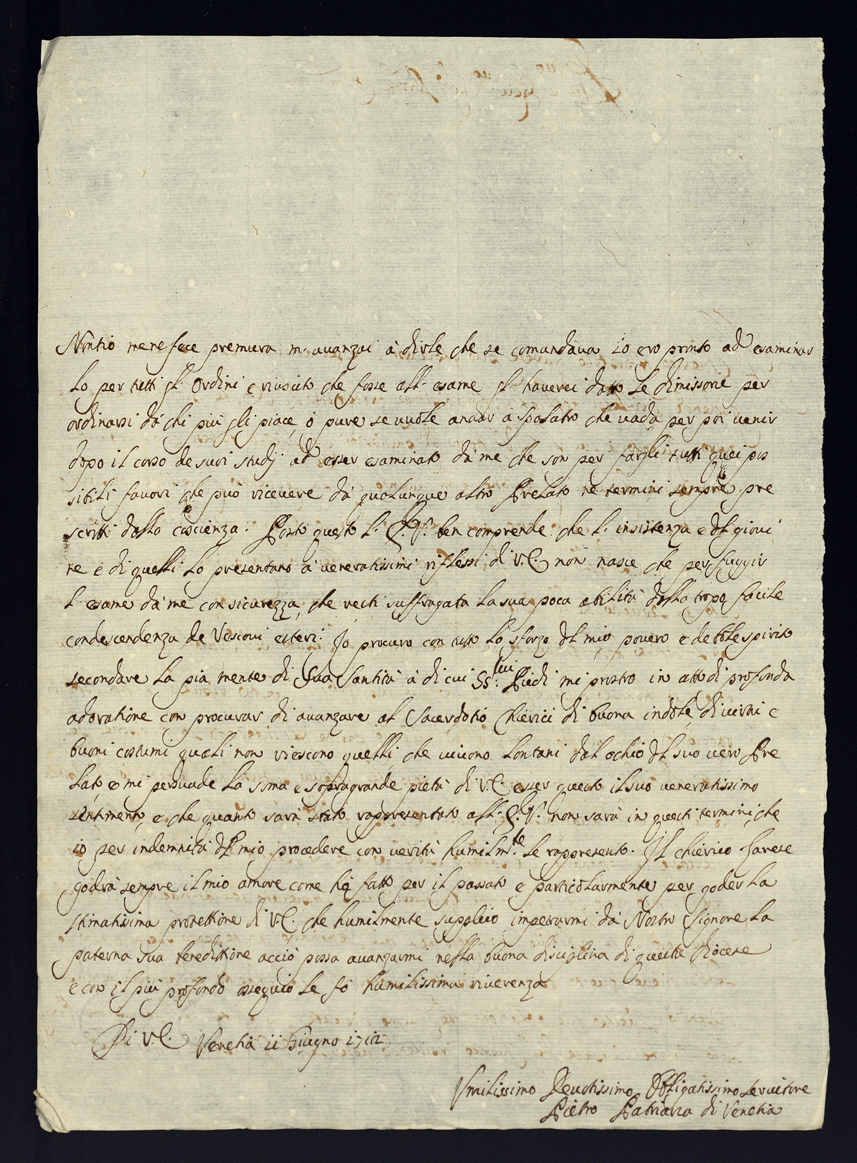 Nontio me ne fece premura m'avanzai à dirle, che se comandava io ero pronto ad esaminar
lo per tutti gl'Ordini e riuscito che fosse all'esame gl'haverei dato le dimissorie per
ordinarsi da chi più gli piace, ò pure se vuole andar a Spalatro che vada, per poi venir
dopo il corso de suoi studj ad esser esaminato da me che son per fargli tutti quei pos
sibili favori che può ricevere da qualunque altro Prelato ne termini sempre pre
scritti dalla coscienza. Posto questo l' E. V. ben comprende che l'insistenza e del giovi
ne e di quelli lo presentano a veneratissimi riflessi di V.E. non nasce che per fuggir
l'esame da me con sicurezza, che resti suffragata la sua poca abilità dalla tropa facile
condescendenza de Vescovi esteri. Io procuro con tutto lo sforzo del mio povero e debole spirito
secondare la pia mente di Sua Santità à di cui SS.mi Piedi mi prostro in atto di profonda
adoratione con procurar di avanzare al Sacerdotio Chierici di buona indole di virtù e
buoni costumi quali non riescono quelli che vivono lontani dal ochio del suo vero Pre
lato e mi persuade la soma e sopragrande pietà di V.E. esser questo il suo veneratissimo
sentimento, e che quanto sarà stato rappresentato all' E. V. non sarà in questi termini, che
io per indemnità del mio procedere con verità humilm.te le rappresento. Il chierico Farese
godrà sempre il mio amore come hà fatto per il passato e particolarmente per goder la
stimatissima protettione di V.E. che humilmente supplico impetrarmi da Nostro Signore la
paterna sua beneditione acciò possa avanzarmi nella buona disciplina di questa Diocese
e con il più profondo ossequio le fò humilissima riverenza
Di V.E. Venetia 11 Giugno 1712
Vmilissimo Devotissimo Obligatissimo Servitore
Pietro Patriarca di Venetia